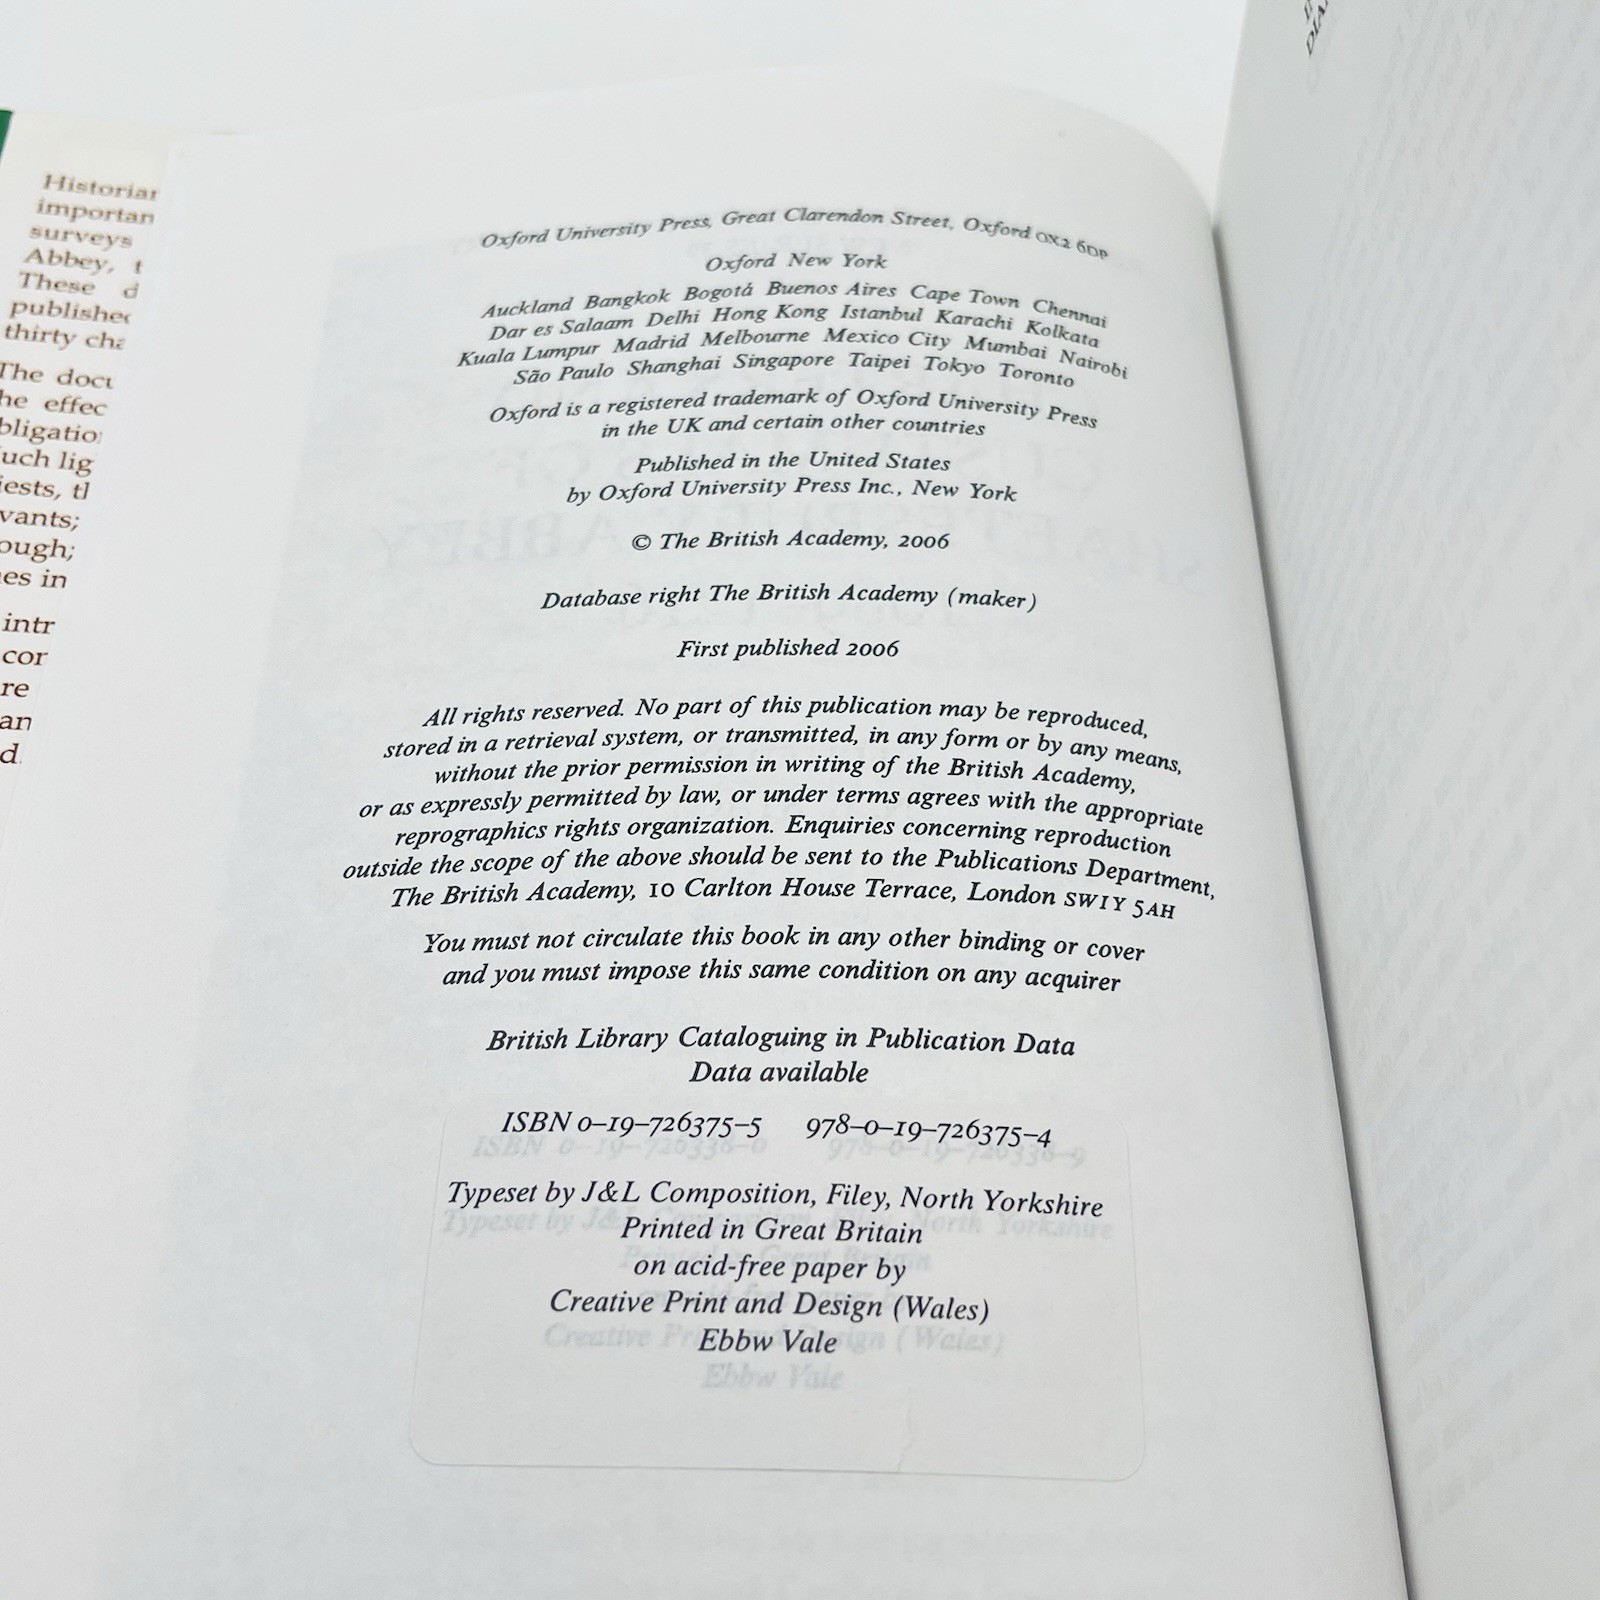 Historian
importan
surveys
Abbey, t
These d
published
thirty cha
The docu
he effec
bligation
uch lig
iests, th
vants;
ough;
es in
intr
cor
re
an
d
Oxford University Press, Great Clarendon Street, Oxford OX2 6DP
Oxford New York
Auckland Bangkok Bogotá Buenos Aires Cape Town Chennai
Dar es Salaam Delhi Hong Kong Istanbul Karachi Kolkata
Kuala Lumpur Madrid Melbourne Mexico City Mumbai Nairobi
São Paulo Shanghai Singapore Taipei Tokyo Toronto
Oxford is a registered trademark of Oxford University Press
in the UK and certain other countries
Published in the United States
by Oxford University Press Inc., New York
© The British Academy, 2006
Database right The British Academy (maker)
First published 2006
All rights reserved. No part of this publication may be reproduced,
stored in a retrieval system, or transmitted, in any form or by any means,
without the prior permission in writing of the British Academy,
or as expressly permitted by law, or under terms agrees with the appropriate
reprographics rights organization. Enquiries concerning reproduction
outside the scope of the above should be sent to the Publications Department,
The British Academy, 10 Carlton House Terrace, London SW1Y 5AH
You must not circulate this book in any other binding or cover
and you must impose this same condition on any acquirer
British Library Cataloguing in Publication Data
Data available
ISBN 0–19–726375–5 978–0–19–726375–4
ISBN 0–19–726338–0 978–0–19–726338–9
Typeset by J&L Composition, Filey, North Yorkshire
Typeset by J&L Composition, Filey, North Yorkshire
Printed in Great Britain
Printed in Great Britain
on acid-free paper by
on acid-free paper by
Creative Print and Design (Wales)
Creative Print and Design (Wales)
Ebbw Vale
Ebbw Vale